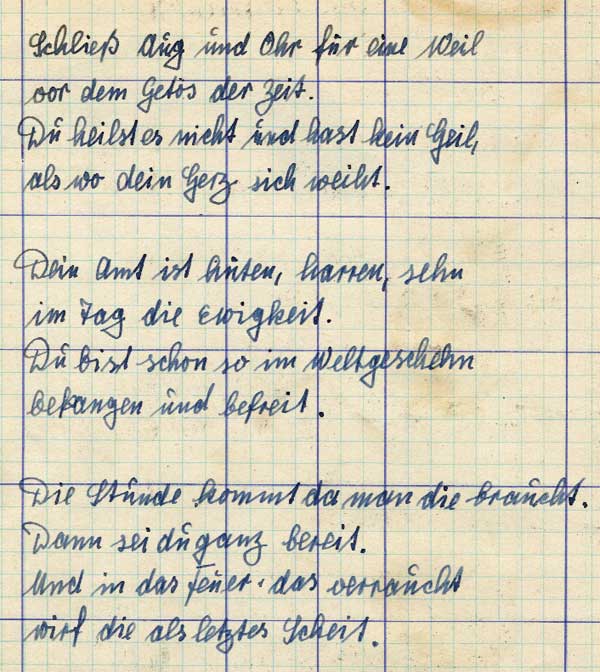 Schließ Aug und Ohr für eine Weil
vor dem Getös der Zeit.
Du heilst es nicht und hast kein Heil,
als wo dein Herz sich weiht.
Dein Amt ist hüten, harren, sehn
im Tag die Ewigkeit.
Du bist schon so im Weltgeschehn
befangen und befreit.
Die Stunde kommt da man die braucht.
Dann sei du ganz bereit.
Und in das Feuer, das verraucht
wirf die als letztes Scheit.